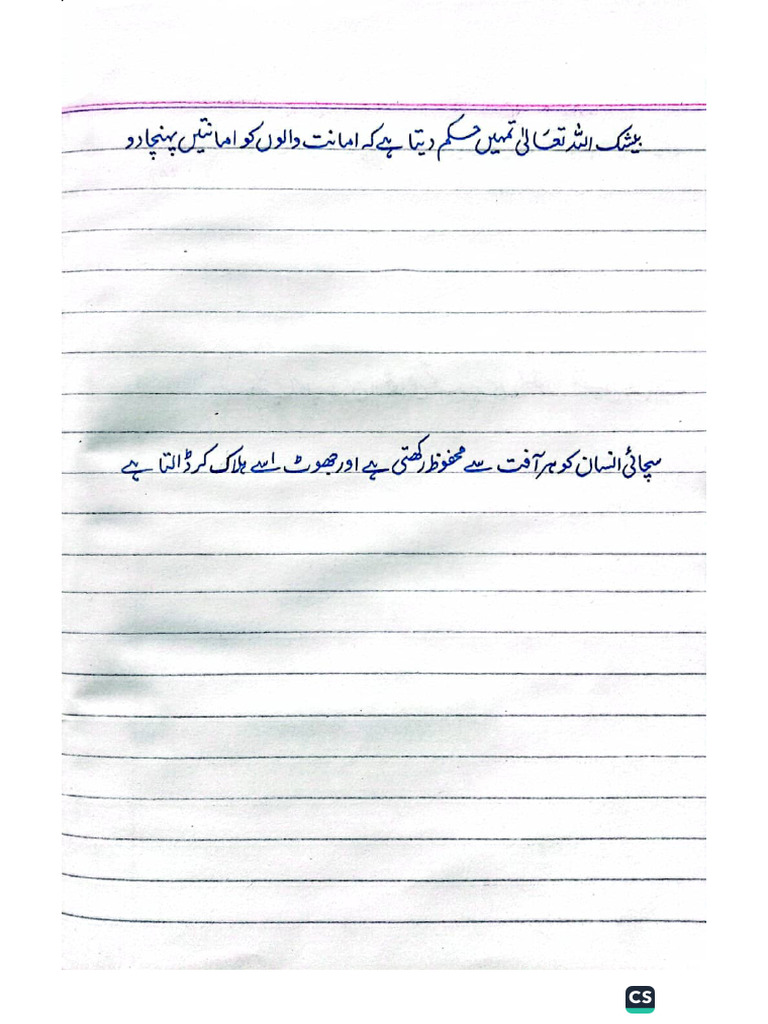 بیشک اللہ تعالیٰ تمہیں حکم دیتا ہے کہ امانت والوں کو امانتیں پہنچا دو
سچائی انسان کو ہر آفت سے محفوظ رکھتی ہے اور جھوٹ اسے ہلاک کر ڈالتا ہے
CS